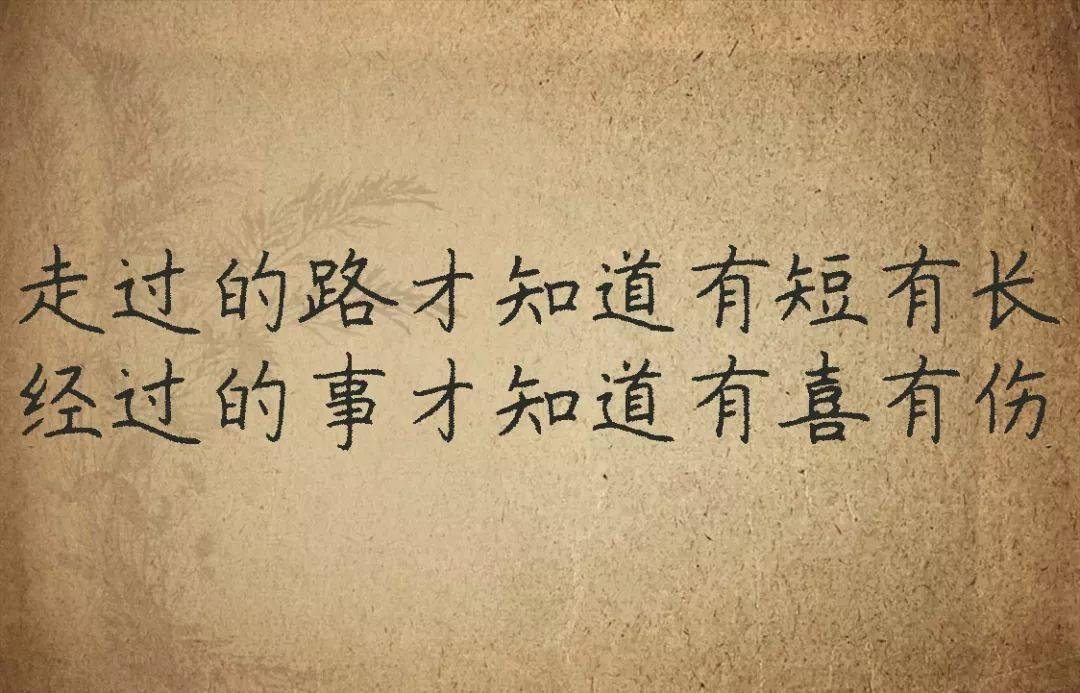 走过的路才知道有短有长
经过的事才知道有喜有伤